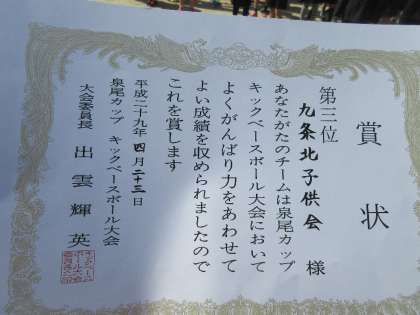 賞状
第三位
九条北子供会 様
あなたがたのチームは泉尾カップ
キックベースボール大会において
よくがんばり力をあわせて
よい成績を収められましたので
これを賞します
平成二十九年四月二十三日
泉尾カップ キックベースボール大会
大会委員長 出雲輝英